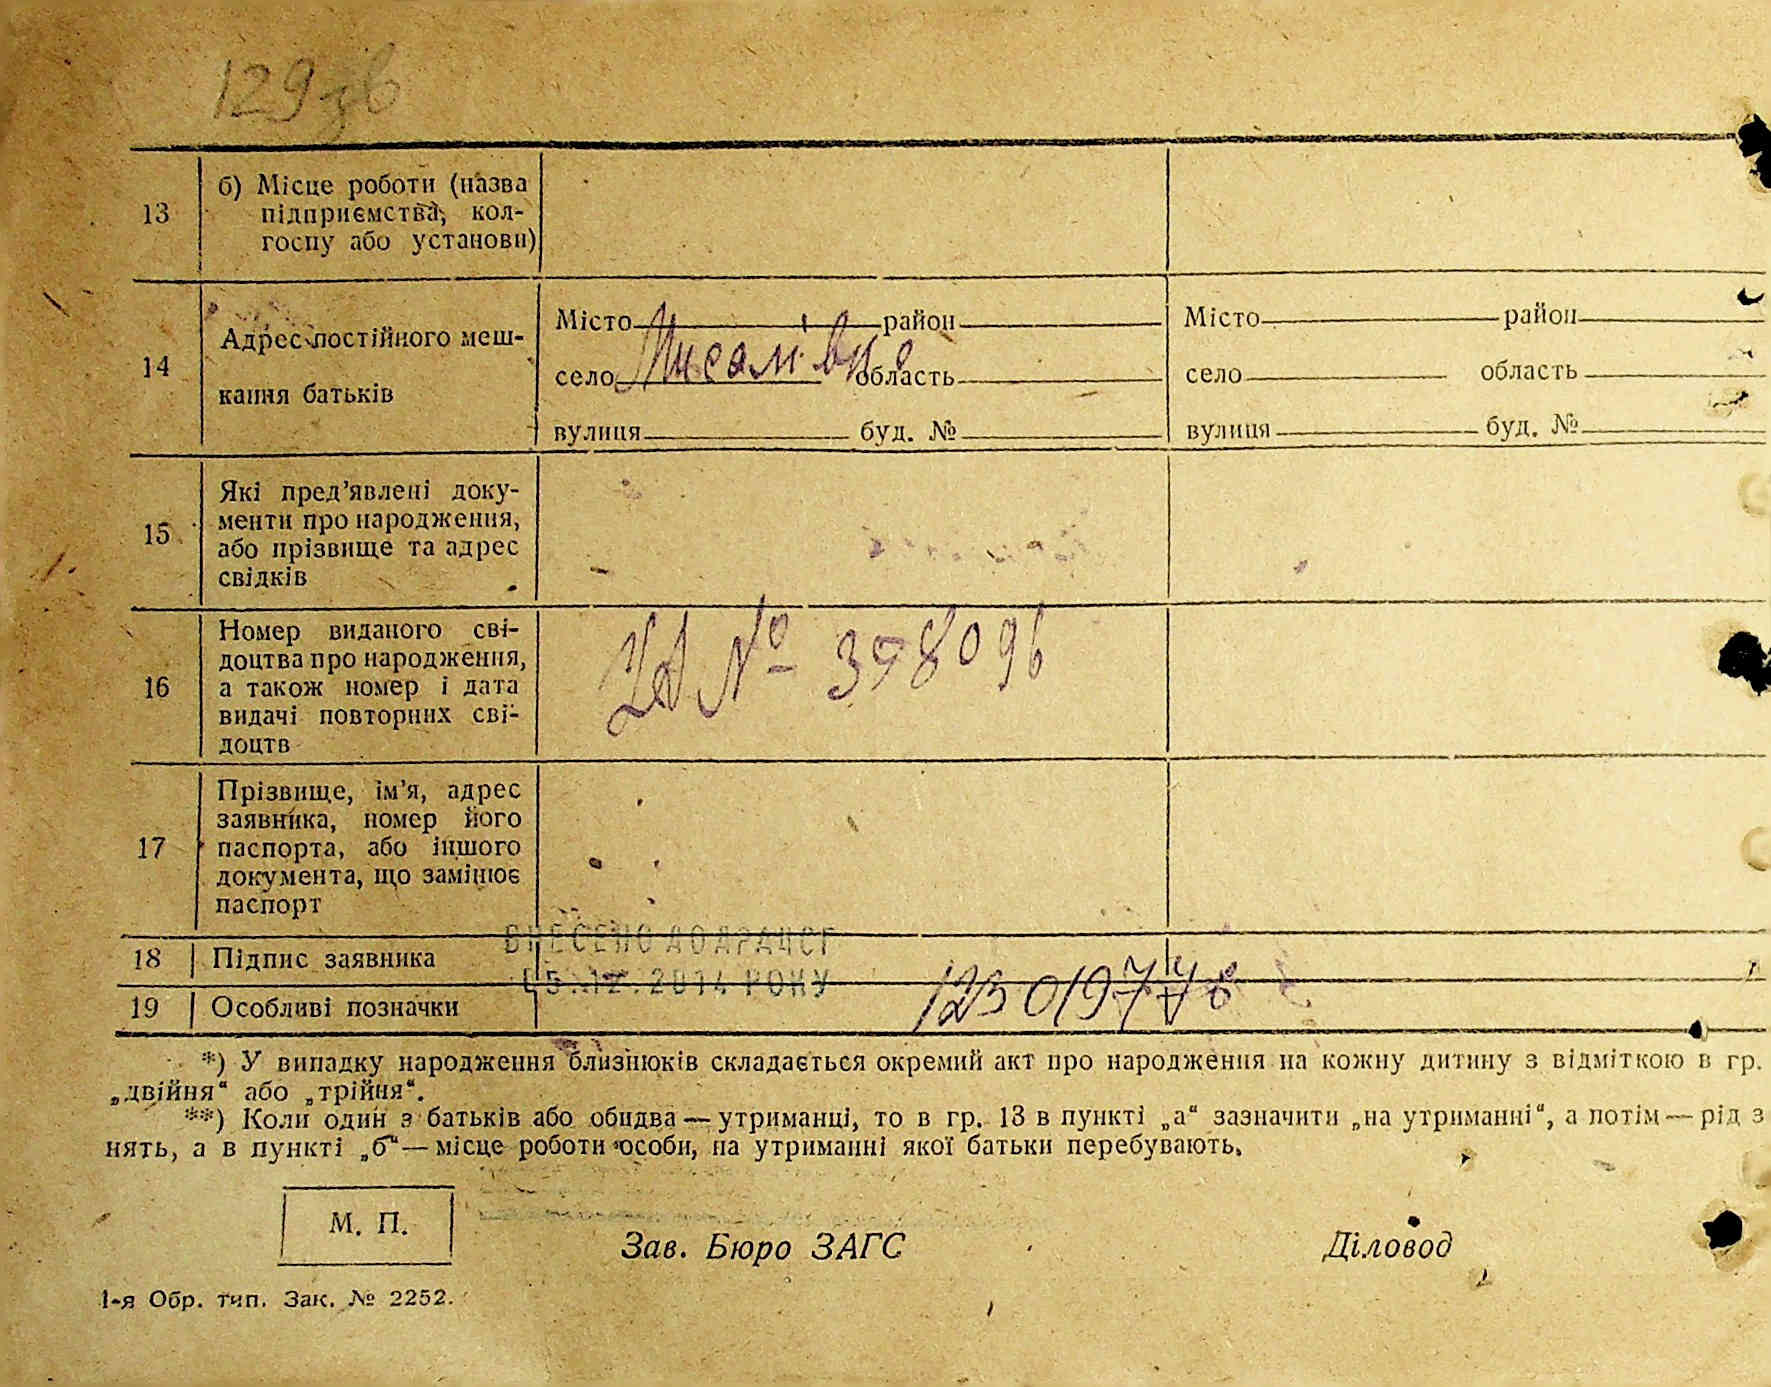 129 зв
13
б) Місце роботи (назва
підприємства, кол-
госпу або установи)
14
Адрес постійного меш-
кання батьків
Місто район
село область
вулиця буд. №
Місто район
село область
вулиця буд. №
15
Які пред’явлені доку-
менти про народження,
або прізвище та адрес
свідків
16
Номер виданого сві-
доцтва про народження,
а також номер і дата
видачі повторних сві-
доцтв
№ 398096
17
Прізвище, ім’я, адрес
заявника, номер його
паспорта, або іншого
документа, що замінює
паспорт
18 Підпис заявника
ВНЕСЕНО ДО ДРАЦСГ
05.12.2014 РОКУ
19 Особливі позначки
*) У випадку народження близнюків складається окремий акт про народження на кожну дитину з відміткою в гр.
„двійня“ або „трійня“.
**) Коли один з батьків або обидва — утриманці, то в гр. 13 в пункті „а“ зазначити „на утриманні“, а потім — рід з
нять, а в пункті „б“ — місце роботи особи, на утриманні якої батьки перебувають.
М. П.
Зав. Бюро ЗАГС
Діловод
1-я Обр. тип. Зак. № 2252.